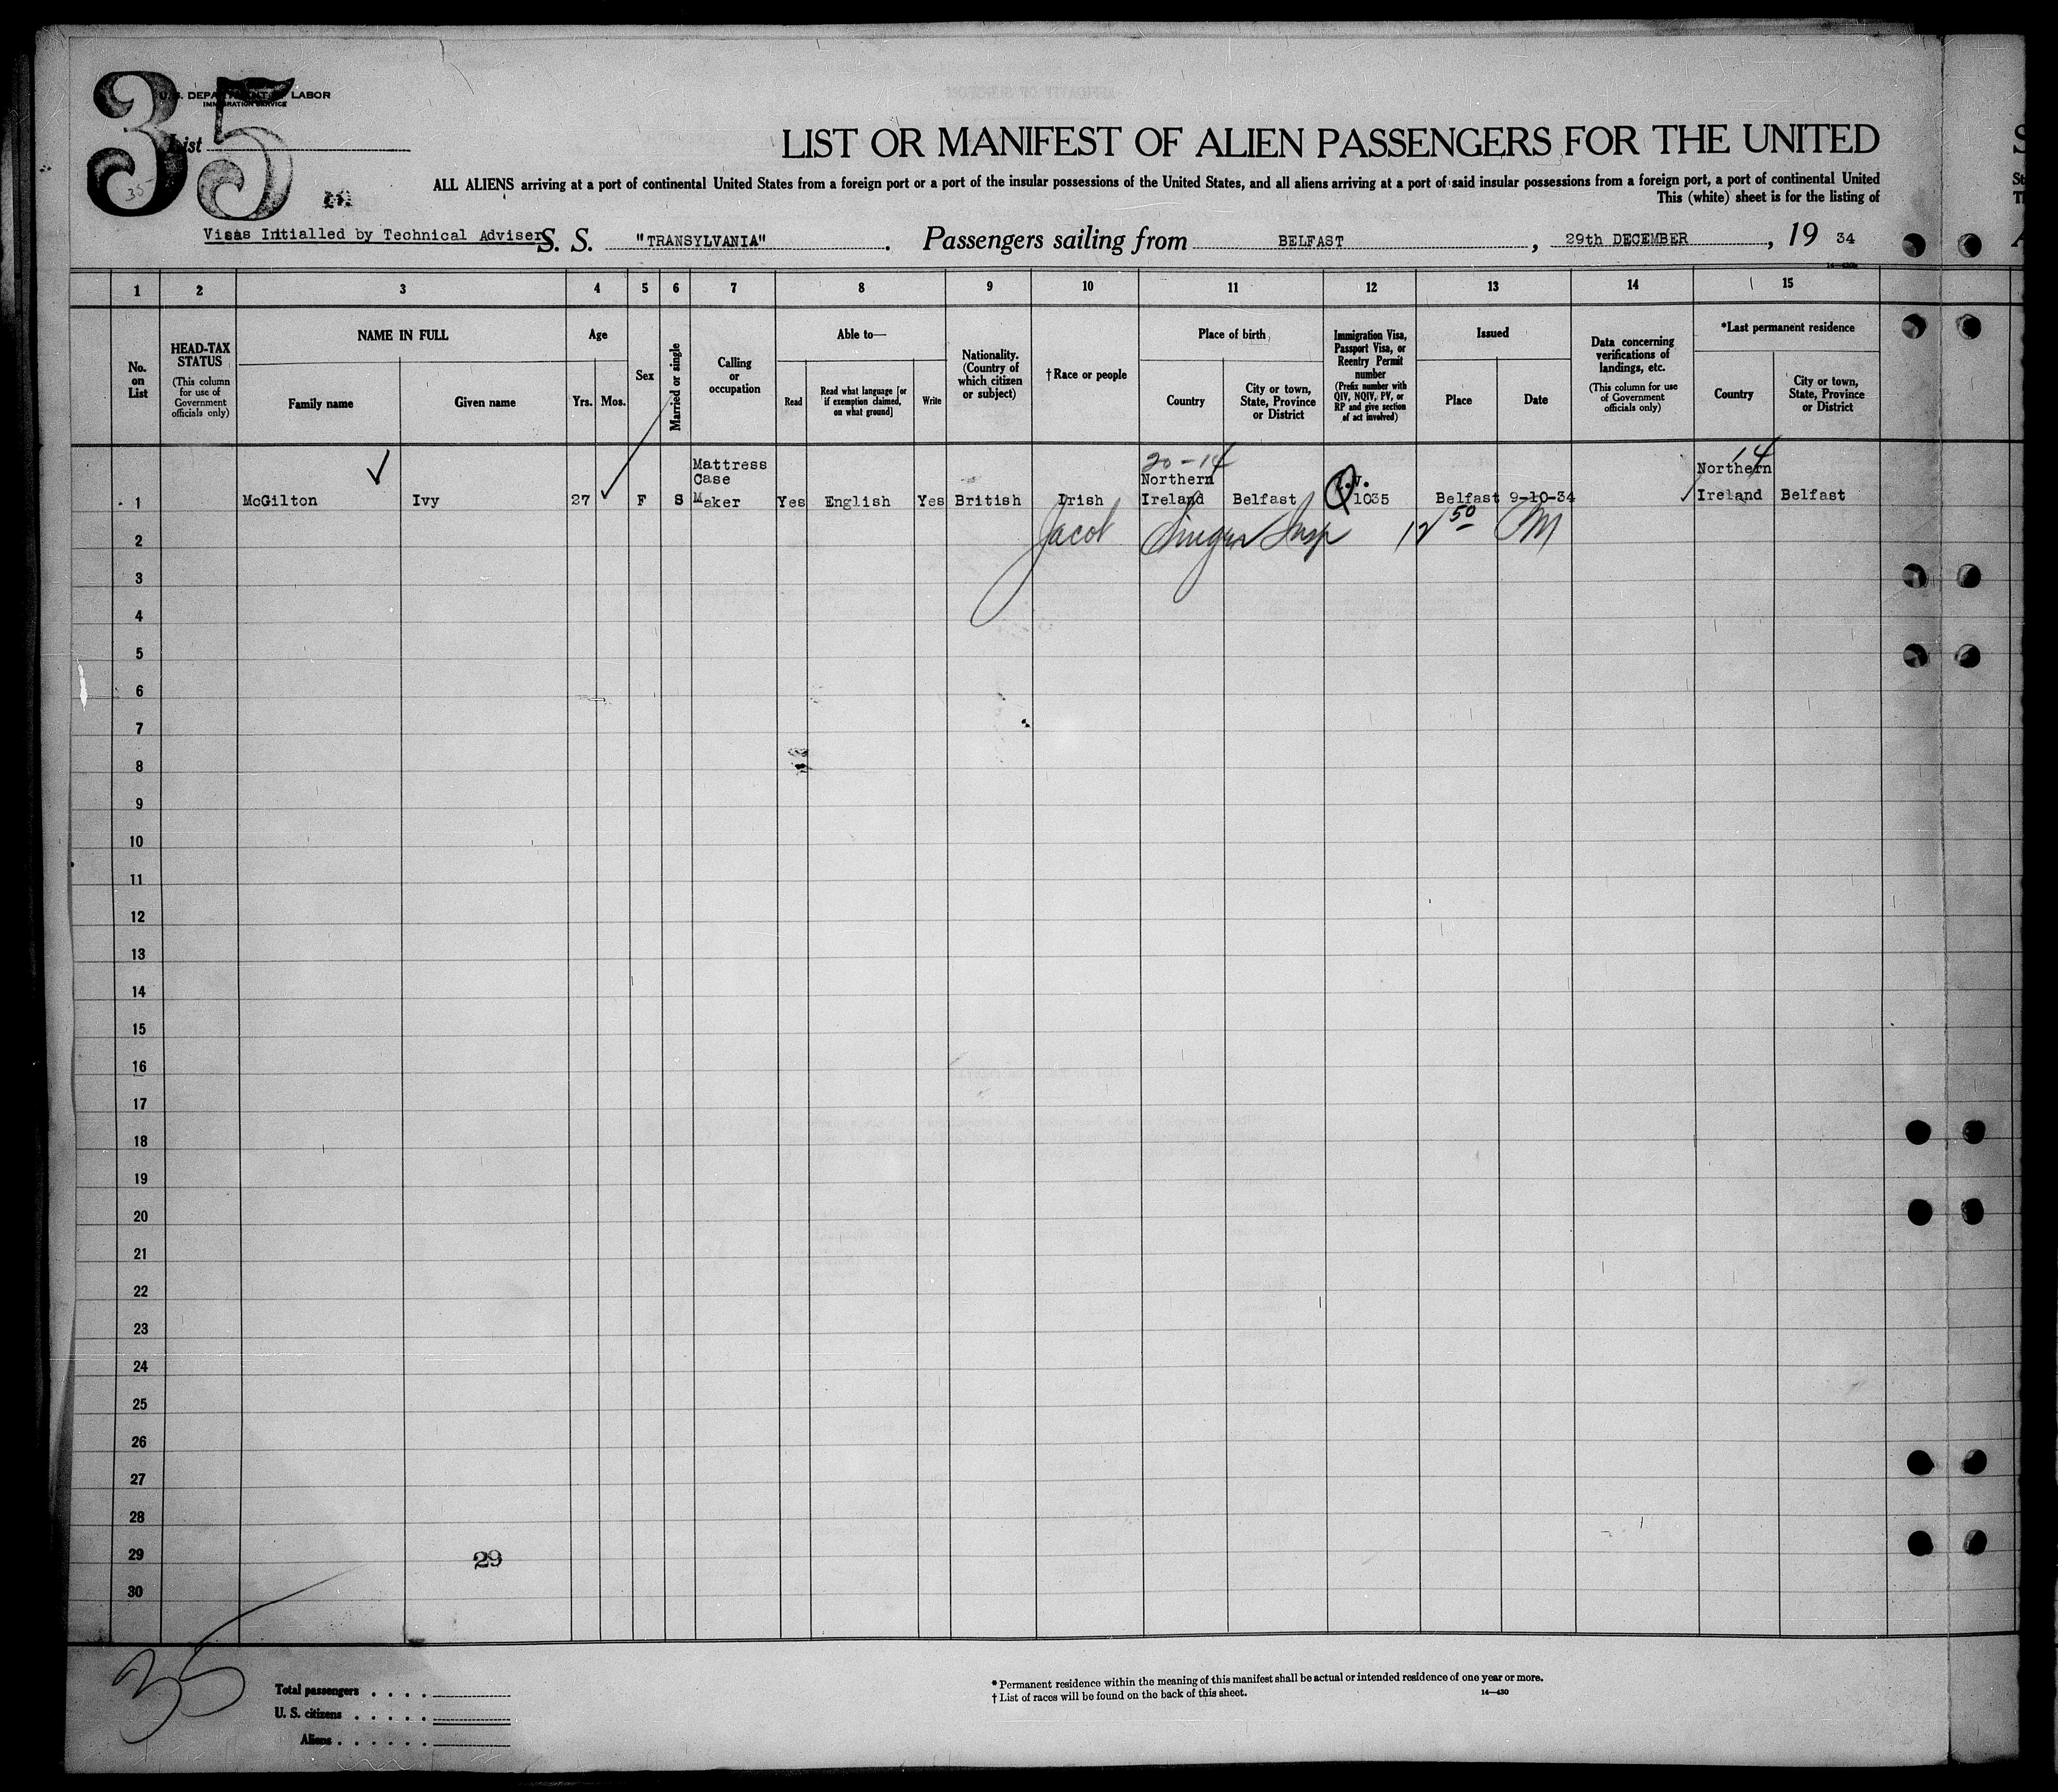 35
U.S. DEPARTMENT OF LABOR
IMMIGRATION SERVICE
List
35
LIST OR MANIFEST OF ALIEN PASSENGERS FOR THE UNITED
ALL ALIENS arriving at a port of continental United States from a foreign port or a port of the insular possessions of the United States, and all aliens arriving at a port of said insular possessions from a foreign port, a port of continental United
This (white) sheet is for the listing of
Visas Initialled by Technical Adviser
S. S. "TRANSYLVANIA". Passengers sailing from BELFAST, 29th DECEMBER, 19 34
1 2 3 4 5 6 7 8 9 10 11 12 13 14 15
No. on List
HEAD-TAX STATUS
(This column for use of Government officials only)
NAME IN FULL
Family name
Given name
Age
Yrs. Mos.
Sex
Married or single
Calling or occupation
Able to—
Read
Read what language [or if exemption claimed, on what ground]
Write
Nationality. (Country of which citizen or subject)
†Race or people
Place of birth
Country
City or town, State, Province or District
Immigration Visa, Passport Visa, or Reentry Permit number
(Prefix number with QIV, NQIV, PV, or RP and give section of act involved)
Issued
Place
Date
Data concerning verifications of landings, etc.
(This column for use of Government officials only)
*Last permanent residence
Country
City or town, State, Province or District
20-14
14
Mattress
Case
Northern
Northern
1 McGilton Ivy 27 F S Maker Yes English Yes British Irish Ireland Belfast 1035 Belfast 9-10-34 Ireland Belfast
2 Jacob Singer Insp 12 50
3
4
5
6
7
8
9
10
11
12
13
14
15
16
17
18
19
20
21
22
23
24
25
26
27
28
29
29
30
35
Total passengers
U. S. citizens
Aliens
* Permanent residence within the meaning of this manifest shall be actual or intended residence of one year or more.
† List of races will be found on the back of this sheet.
14—430